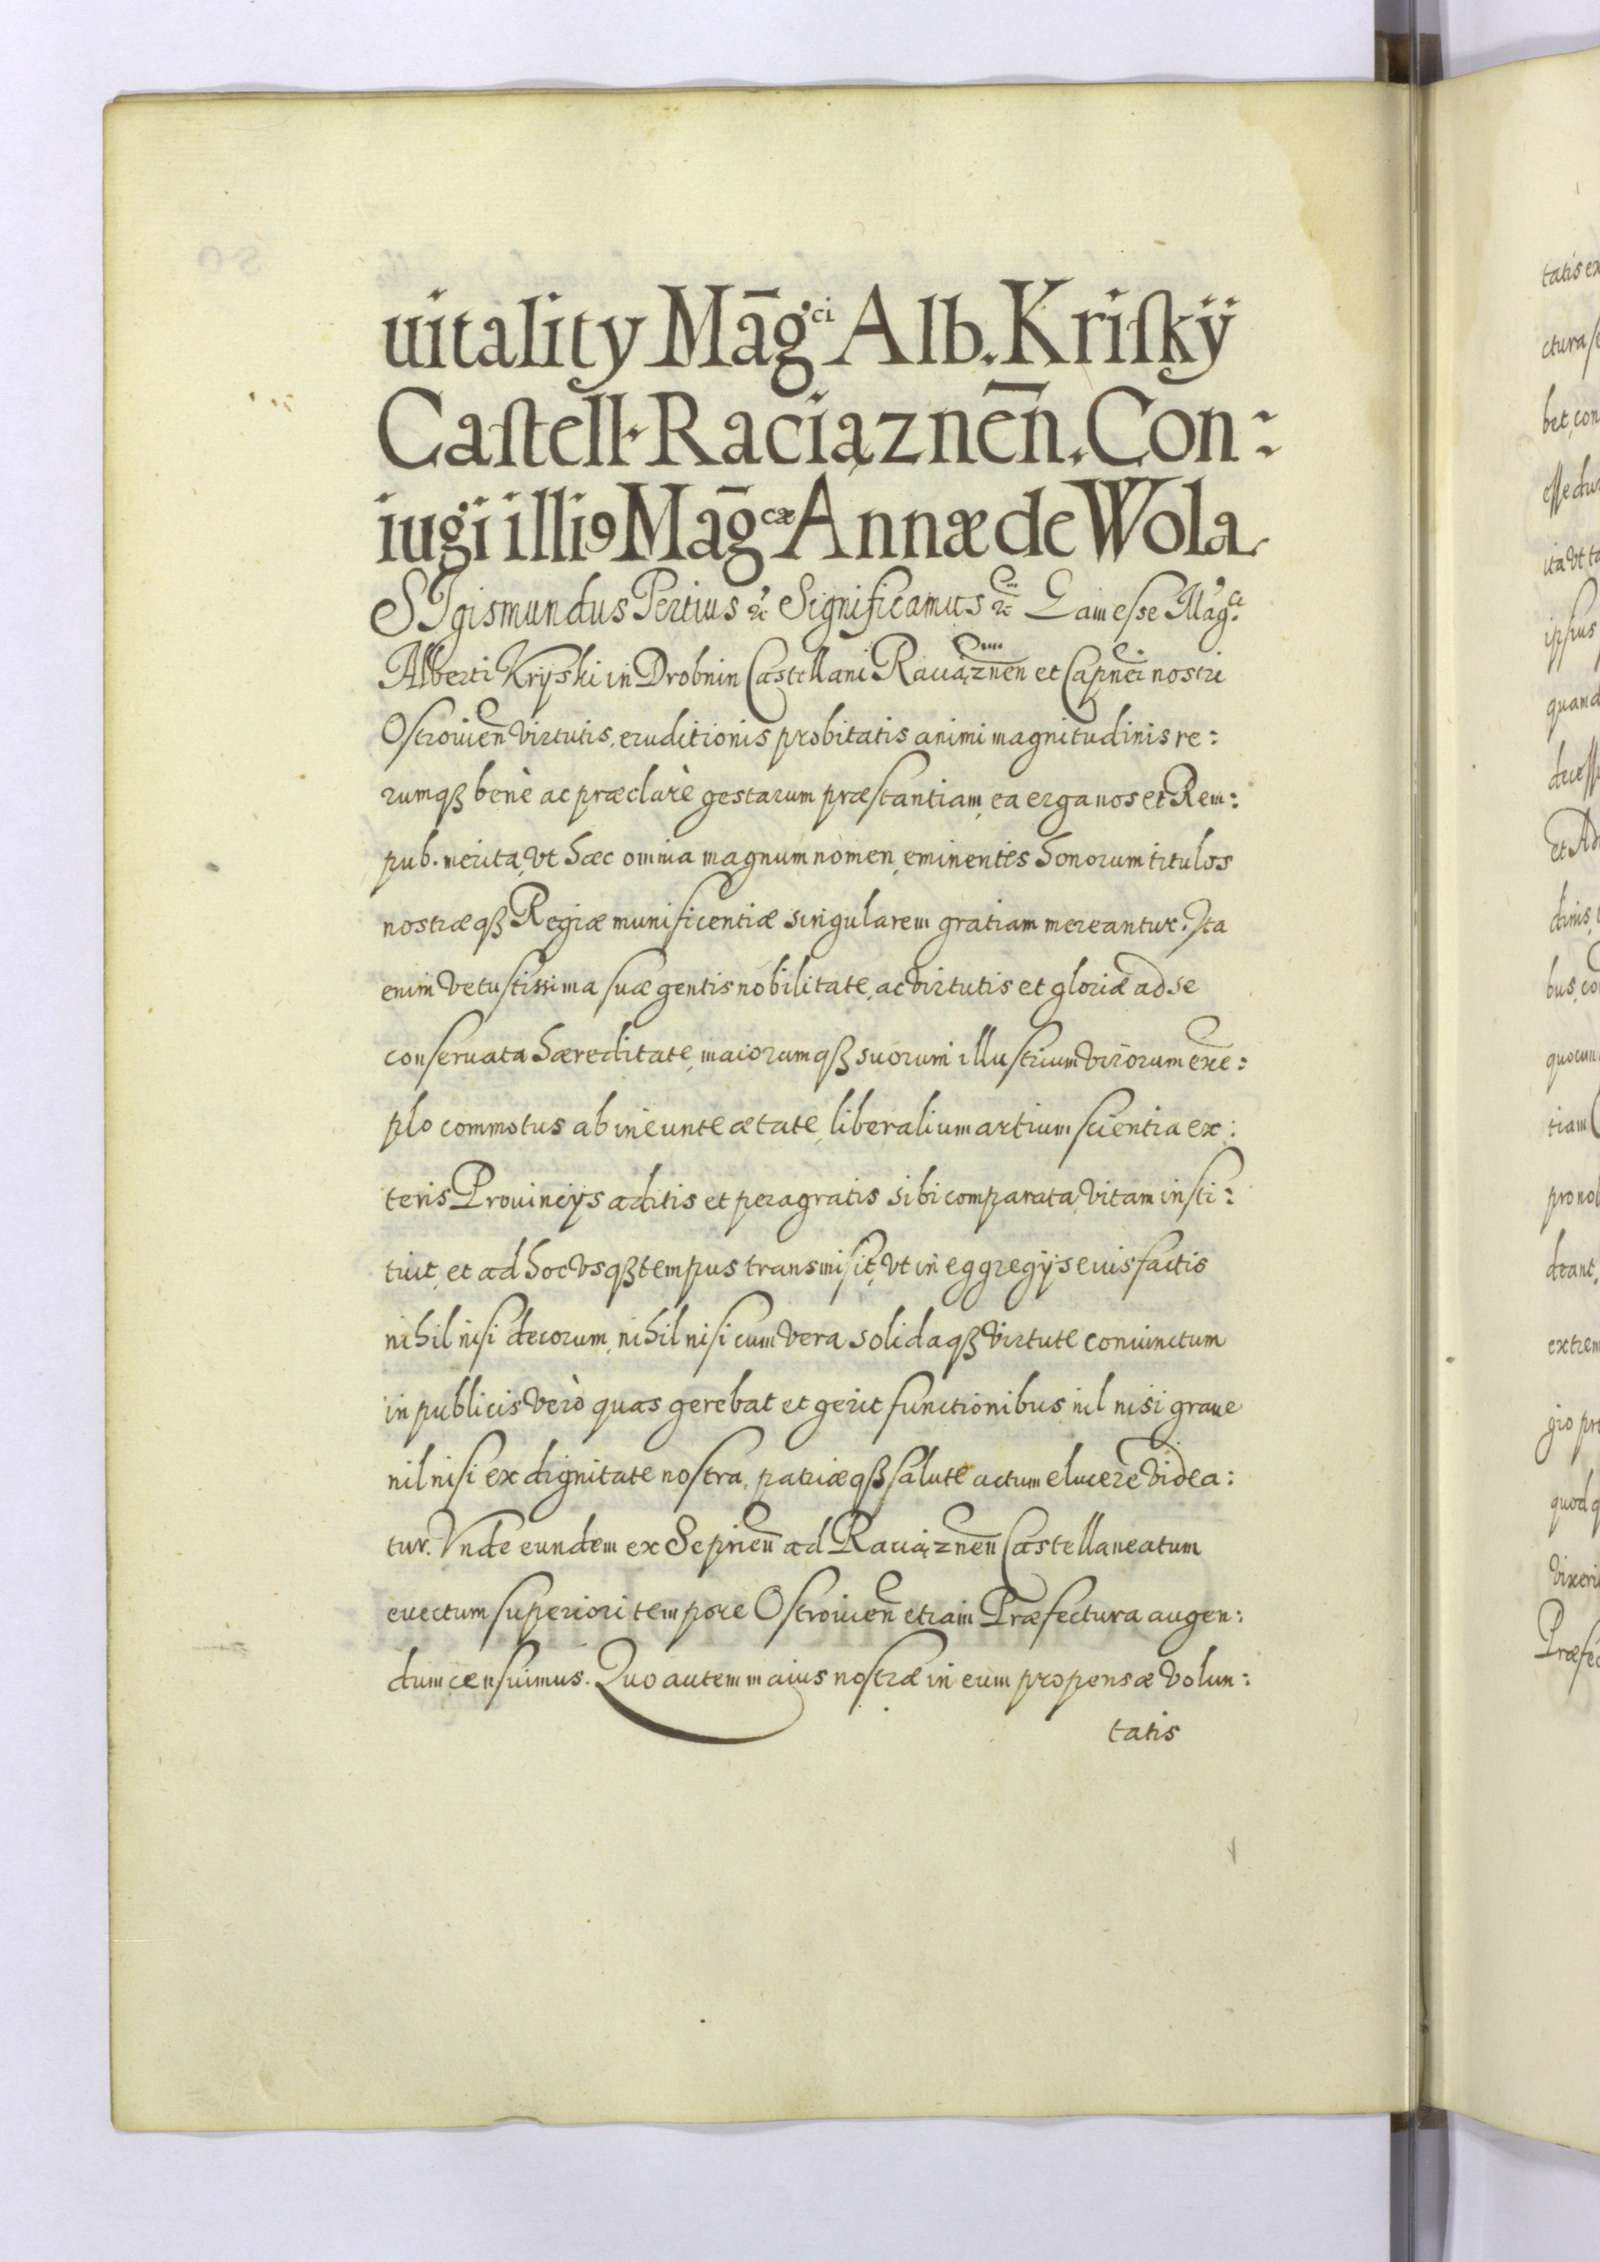 uitality Māg^ci Alb. Kriſkÿ
Caſtell. Raciązneñ. Con:
iugi illiꝰ Māg^cæ Annæ de Wola.
SIgismundus Tertius ꝛc̃ Significamus ꝛc̃ Eam esse Mag^ci
Alberti Kryski in Drobnin Castellani Raciązneñ et Capnei nostri
Ostrouieñ virtutis, eruditionis probitatis animi magnitudinis re:
rumqꝫ benè ac præclarè gestarum præstantiam, ea erga nos et Rem:
pub. merita, vt hæc omnia magnum nomen, eminentes honorum titulos
nostræqꝫ Regiæ munificentiæ singularem gratiam mereantur. Ita
enim vetustissima suæ gentis nobilitate, ac virtutis et gloriæ ad se
conseruata hæreditate, maiorumqꝫ suorum illustrium virorum exē:
plo commotus ab ineunte ætate, liberalium artium scientia ex:
teris Prouincijs aditis et peragratis sibi comparata, vitam insti:
tuit, et ad hoc vsqꝫ tempus transmisit, vt in eggregijs eius factis
nihil nisi decorum, nihil nisi cum vera solidaqꝫ virtute coniunctum
in publicis verò quas gerebat et gerit functionibus, nil nisi graue
nil nisi ex dignitate nostra, patriæqꝫ salute actum elucere videa:
tur. Vnde eundem ex Sepricñ ad Raciązneñ Castellaneatum
euectum superiori tempore Ostrouieñ etiam Præfectura augen:
dum censuimus. Quo autem maius nostræ in eum propensæ volun:
tatis